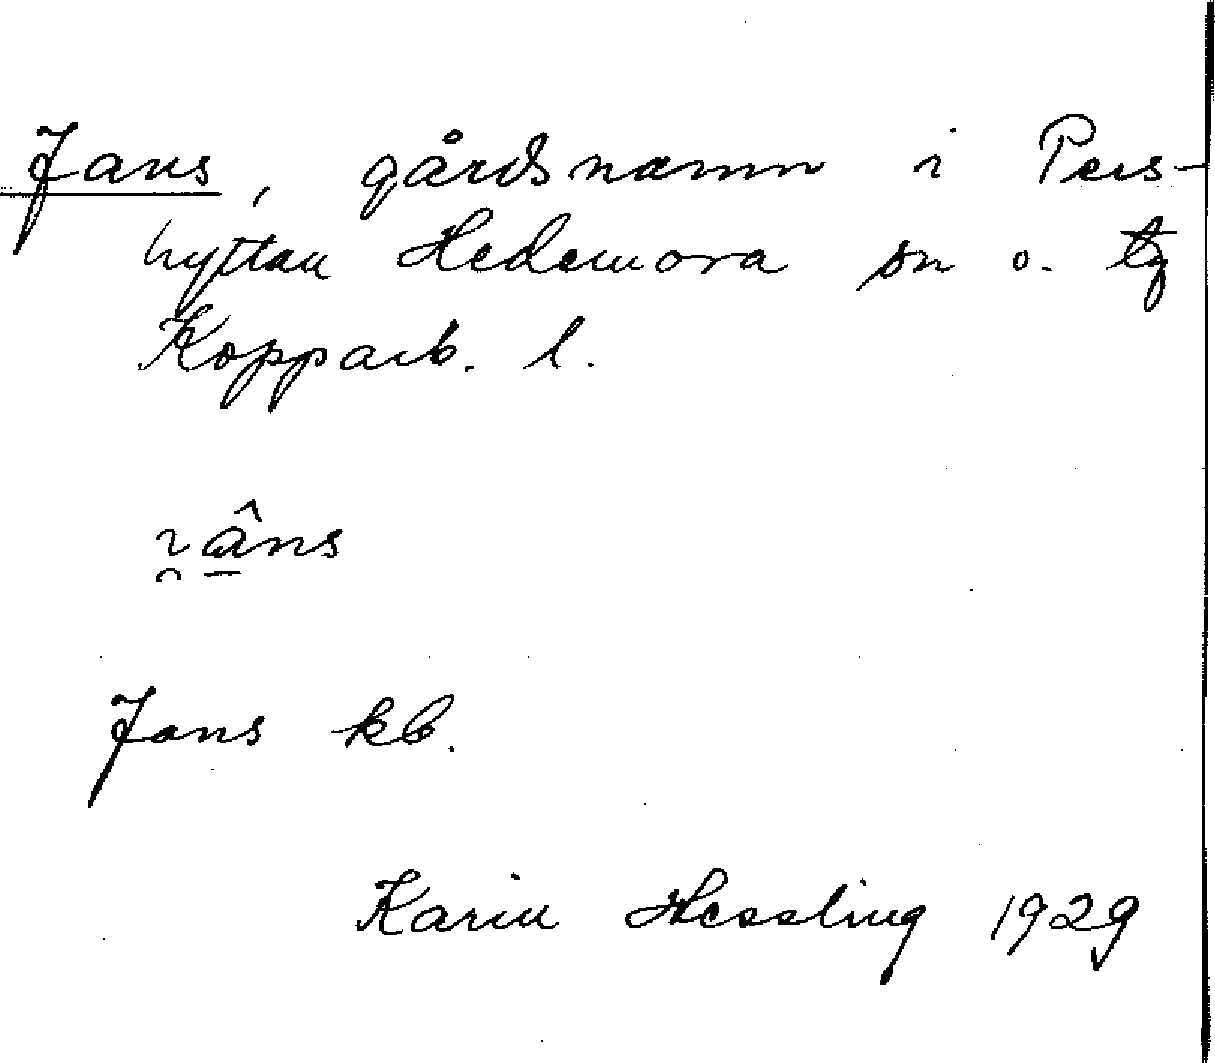 Jans, gårdsnamn i Pers-
hyttan Hedemora sn o. tg
Kopparb. l.
i̯â̱ns
Jans kb.
Karin Hessling 1929